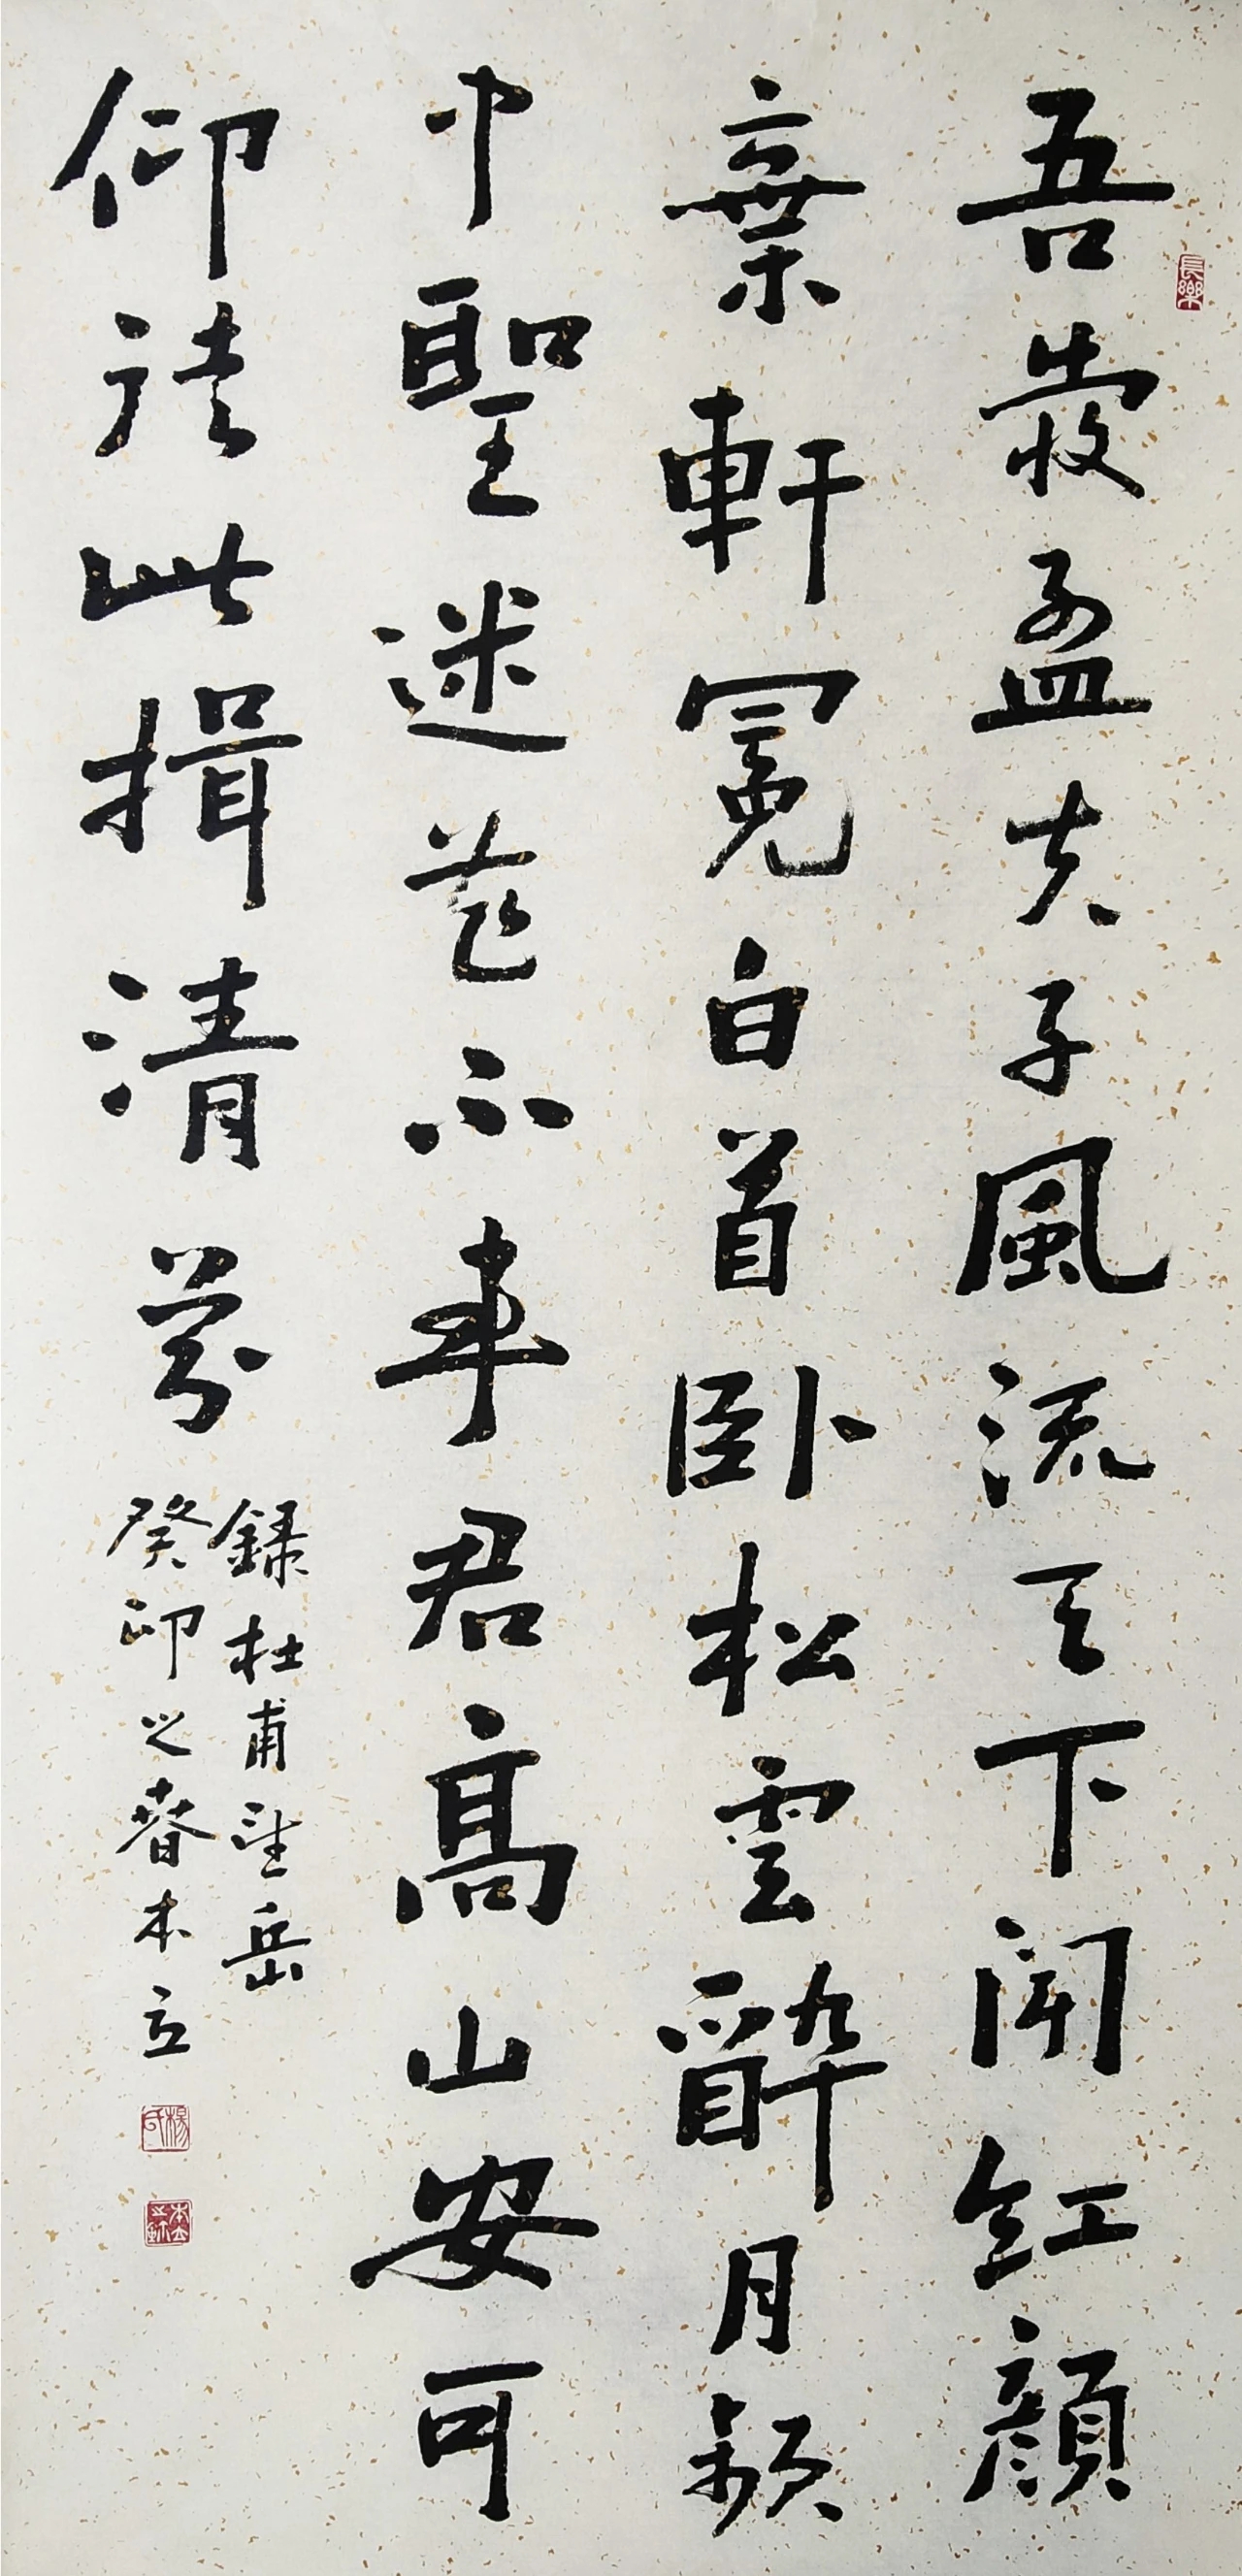 吾愛孟夫子風流天下聞紅顏
棄軒冕白首卧松雲醉月頻
中聖迷花不事君高山安可
仰徒此揖清芬
錄杜甫望岳
癸卯之春本立
長樂
楊氏